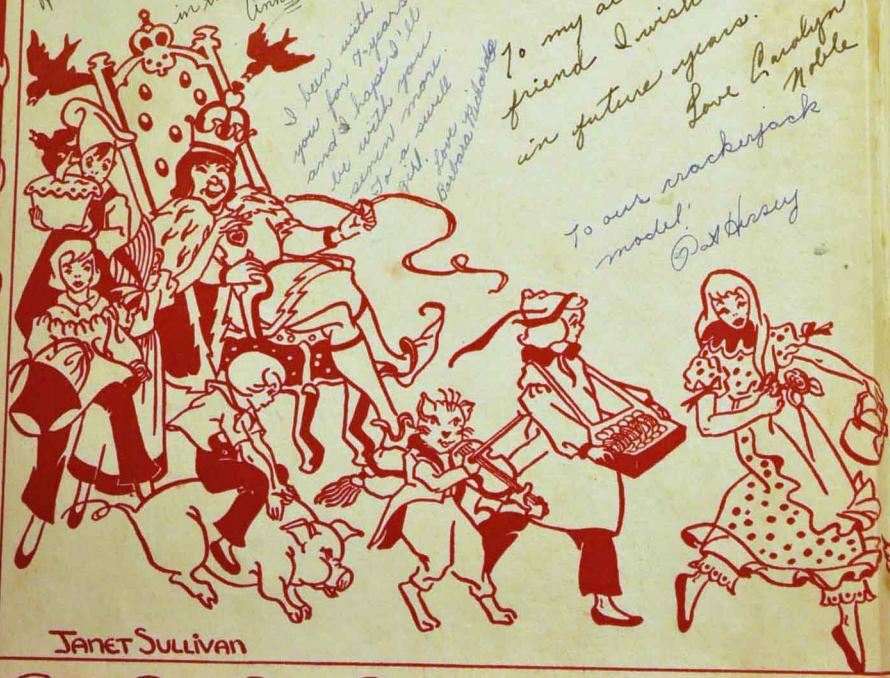 in
I been with
you for 7-years
and I hope I'll
be with you
seven more.
To a swell
girl. Love
Barbara Richards
To my
friend I wish
in future years.
Love Carolyn
Noble
To our crackerjack
model!
Pat Hersey
JANET SULLIVAN